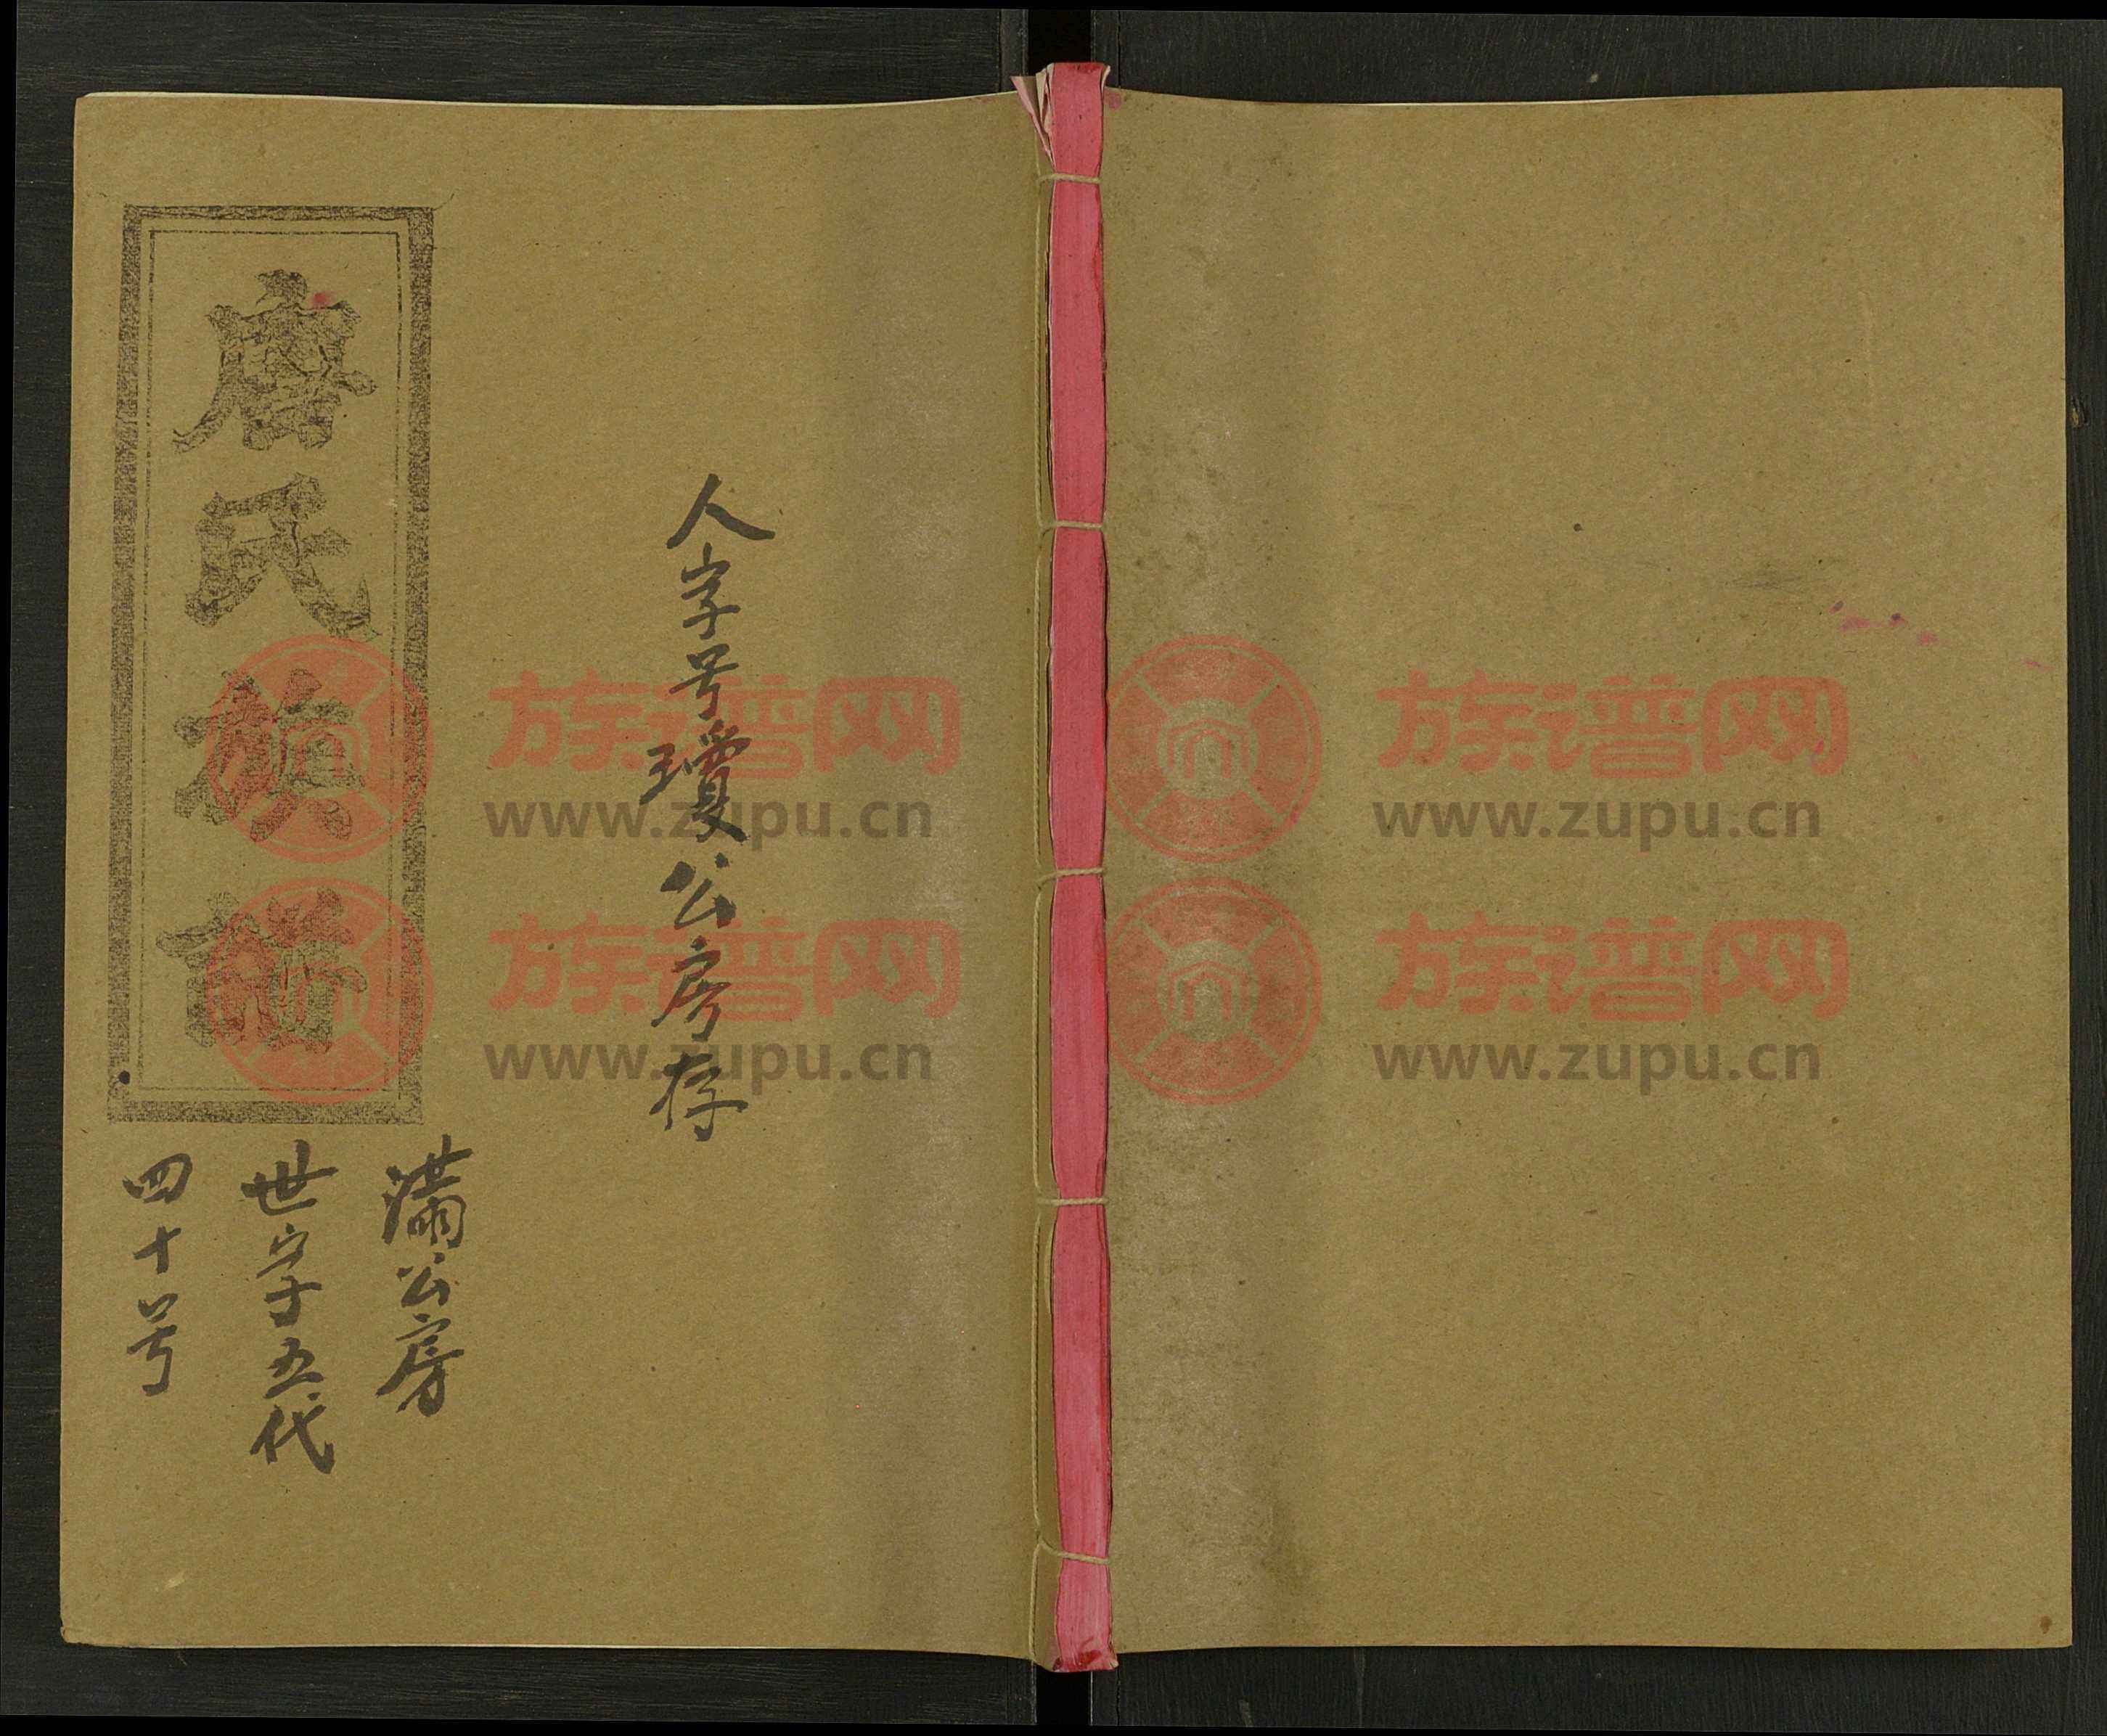 人字号瓊公房存
滿公房
世字五代
四十号
唐氏族譜
族谱网
www.zupu.cn
族谱网
www.zupu.cn
族谱网
www.zupu.cn
族谱网
www.zupu.cn